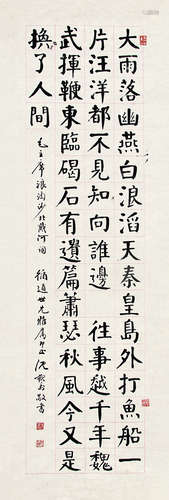 大雨落幽燕白浪滔天秦皇島外打魚船一
片汪洋都不見知向誰邊 往事越千年魏
武揮鞭東臨碣石有遺篇蕭瑟秋風今又是
換了人間
毛主席浪淘沙北戴河詞 世兄雅屬 正 沈 敬書